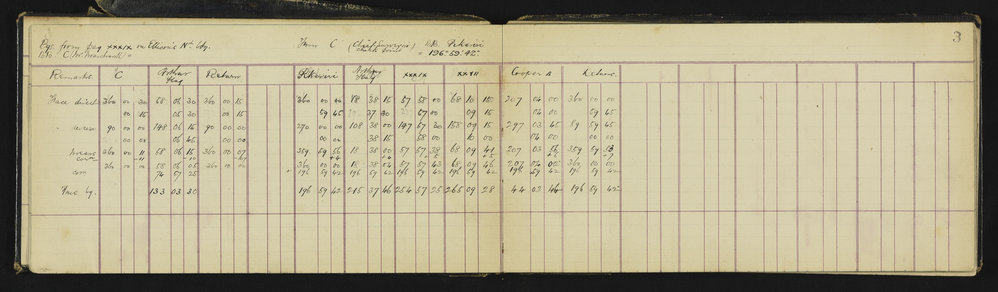 3
Obs. from peg xxxix on Ellison's Nth Bdy. From C (Chief Surveyor) Pikiwi
= 196° 59' 42"
Remarks C Arthur Flag Return Pikiwi Arthur Flag xxxix xxxvii Cooper A Return
Face direct 360 00 30 68 06 30 360 00 15 360 00 00 18 38 15 57 58 00 68 10 15 207 04 00 360 00 00
00 15 05 30 00 15 59 45 37 30 57 00 09 15 04 00 59 45
" reverse 90 00 00 148 06 15 90 00 00 270 00 00 108 38 00 147 57 30 158 09 15 297 03 45 89 59 45
00 00 06 45 00 00 00 00 38 15 58 00 10 00 04 00 00 00
means 360 00 11 68 06 15 360 00 07 359 59 56 18 38 00 57 57 38 68 09 41 207 03 56 359 59 53
corr -11 -10 -07 +4 +4 +5 +5 +6 +7
360 00 00 68 06 05 360 00 00 360 00 00 18 38 04 57 57 43 68 09 46 207 04 02 360 00 00
con 74 57 25 196 59 42 196 59 42 196 59 42 196 59 42 196 59 42 196 59 42
True bg. 133 03 30 196 59 42 215 37 46 254 57 25 265 09 28 44 03 44 196 59 42